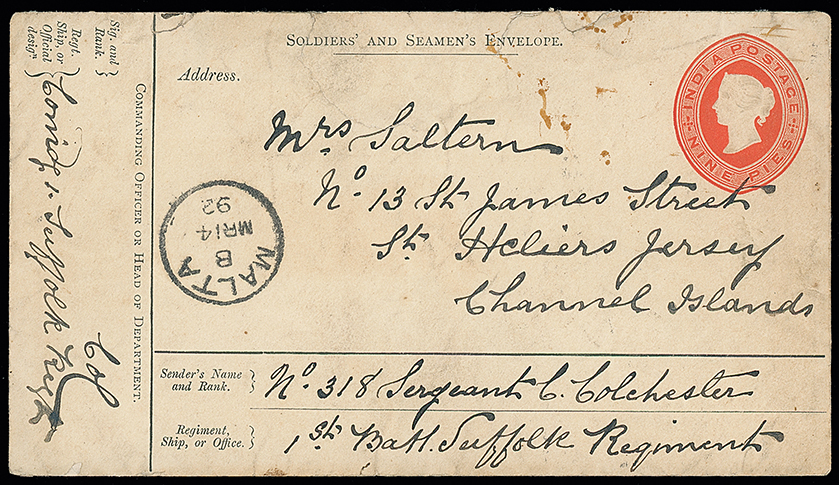 SOLDIERS' AND SEAMEN'S ENVELOPE.
INDIA POSTAGE
NINE PIES
Address.
Mrs Saltern
No 13 St James Street
St Heliers Jersey
Channel Islands
MALTA
B
MR 14
92
Sender's Name
and Rank.
No. 318 Sergeant C. Colchester
Regiment,
Ship, or Office.
1st Batt. Suffolk Regiment
Sig. and
Rank.
Regt.
Ship, or
Official
design.
Col
1. Suffolk Regt
COMMANDING OFFICER OR HEAD OF DEPARTMENT.